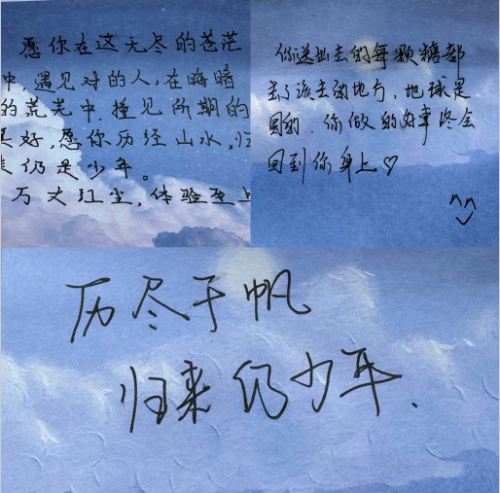 愿你在这无尽的苍茫
中,遇见对的人,在晦暗
的荒芜中,撞见所期的
美好,愿你历经山水,归
来仍是少年。
万丈红尘,体验至上
你送出去的每颗糖都
去了该去的地方,地球是
圆的,你做的好事终会
回到你身上♡
历尽千帆
归来仍少年.